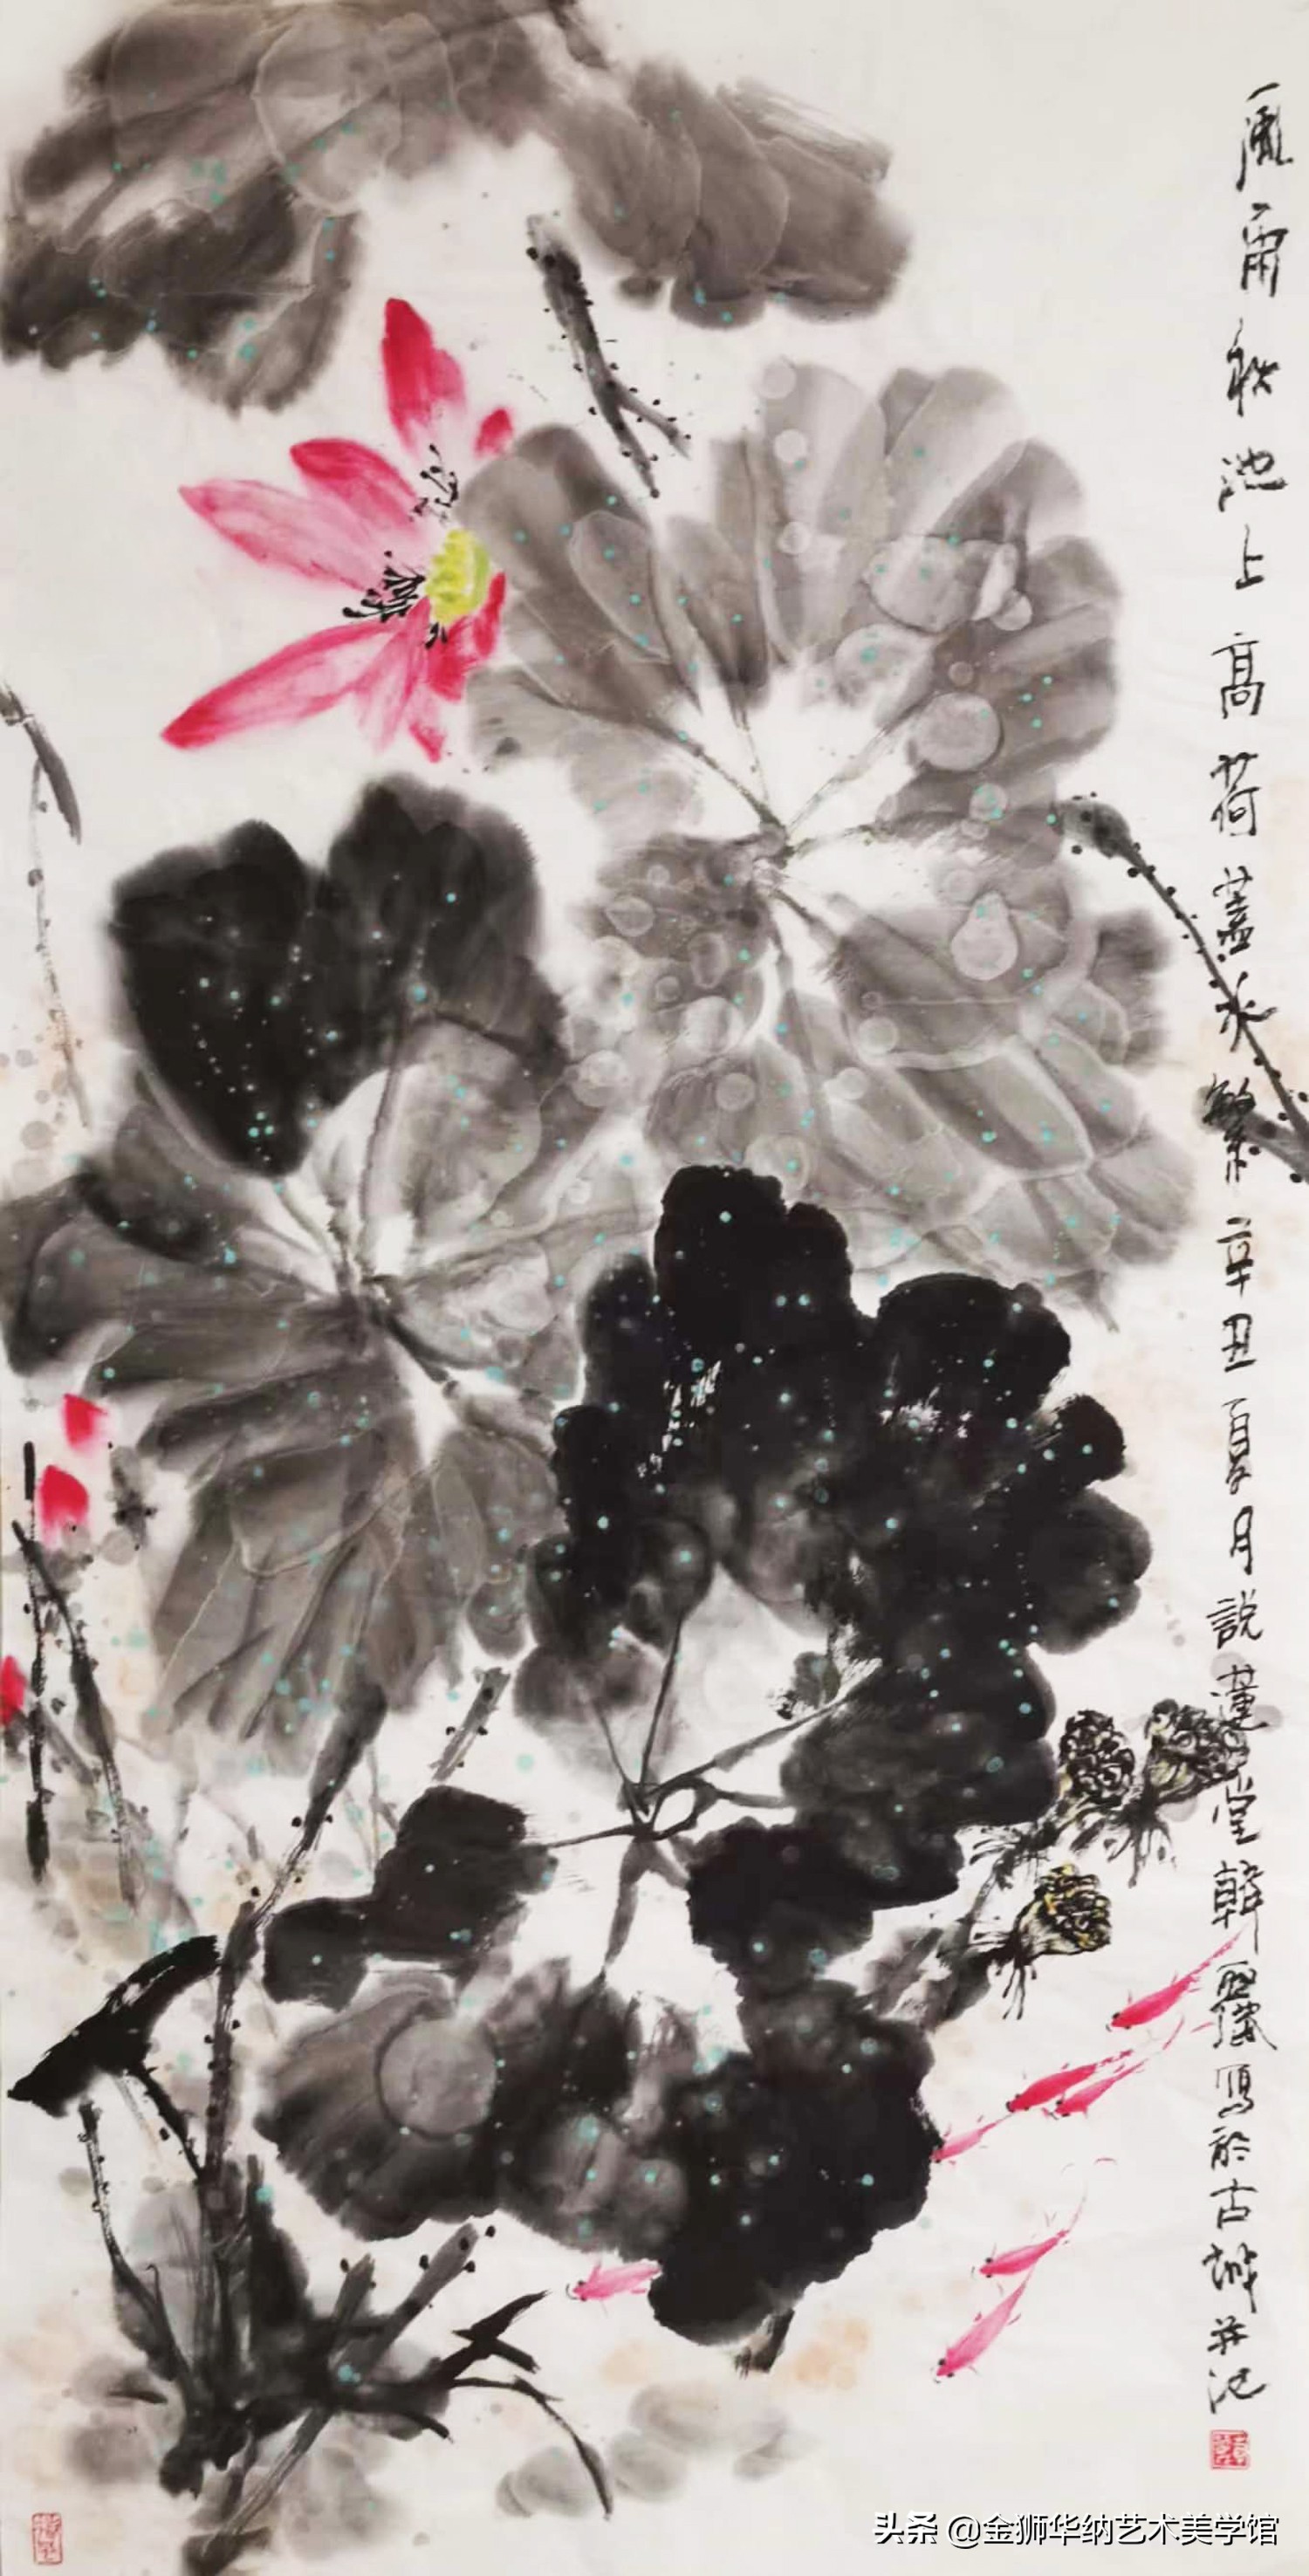 風雨秋池上高荷蓋水繁辛丑夏月說蓮堂韓墨寫於古城并記
头条 @金狮华纳艺术美学馆